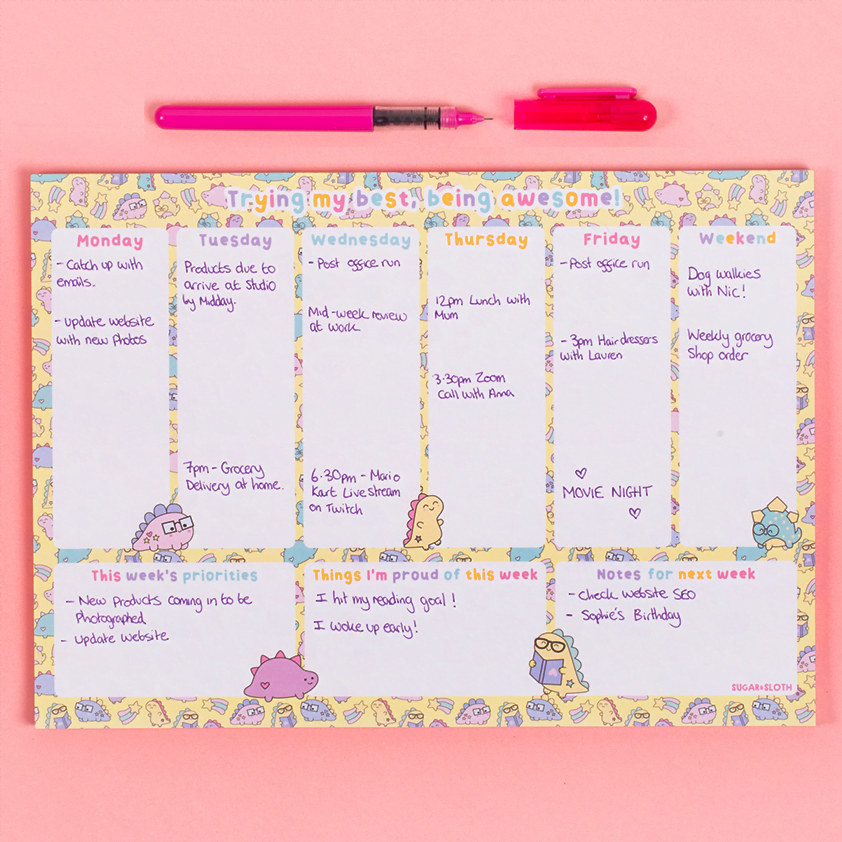 Trying my best, being awesome!
Monday
- Catch up with
emails.
- Update website
with new Photos
Tuesday
Products due to
arrive at Studio
by Midday.
7pm - Grocery
Delivery at home.
Wednesday
- Post office run
Mid-week review
at work
6.30pm - Mario
Kart Live stream
on Twitch
Thursday
12pm Lunch with
Mum
3.30pm Zoom
Call with Anna
Friday
- Post office run
- 3pm Hairdressers
with Lauren
MOVIE NIGHT
Weekend
Dog walkies
with Nic!
Weekly grocery
Shop order
This week's priorities
- New Products coming in to be
Photographed
- Update Website
Things I'm proud of this week
I hit my reading goal!
I woke up early!
Notes for next week
- Check Website SEO
- Sophie's Birthday
SUGAR & SLOTH